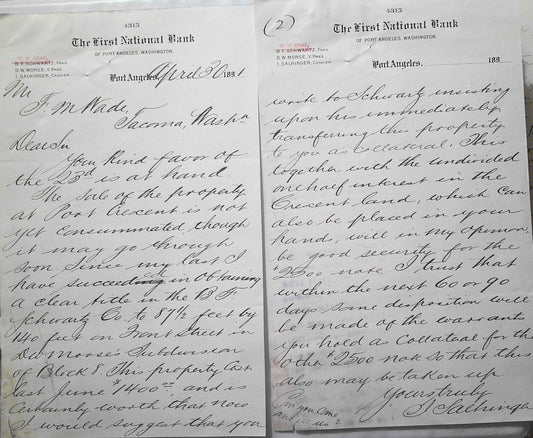 4315
The First National Bank
OF PORT ANGELES, WASHINGTON.
B. F. SCHWARTZ, PRES.
D. W. MORSE, V. PRES.
I. SALHINGER, CASHIER.
Port Angeles, April 30 1891
Mr
F. M. Wade,
Tacoma, Washn
Dear Sir
Your kind favor of
the 23d is at hand.
The sale of the property
at Port Crescent is not
yet consummated, though
it may go through
soon. Since my last I
have succeeded in obtaining
a clear title in the B. F.
Schwartz Co. to 87 1/2 feet by
140 feet on Front Street in
D. W. Morse's Subdivision
of Block 8 This property cost
last June $1400.00, and is
certainly worth that now.
I would suggest that you
(2)
4315
The First National Bank
OF PORT ANGELES, WASHINGTON.
B. F. SCHWARTZ, PRES.
D. W. MORSE, V. PRES.
I. SALHINGER, CASHIER.
Port Angeles, 189
write to Schwartz insisting
upon his immediately
transferring this property
to you as collateral. This
together with the undivided
one half interest in the
Crescent land, which can
also be placed in your
hands, will in my opinion,
be good security for the
$2500 note I trust that
within the next 60 or 90
days some disposition will
be made of the warrants
you hold as Collateral for the
other $2500 note so that this
also may be taken up
Yours truly
I Salhinger
Can you come
and see us?